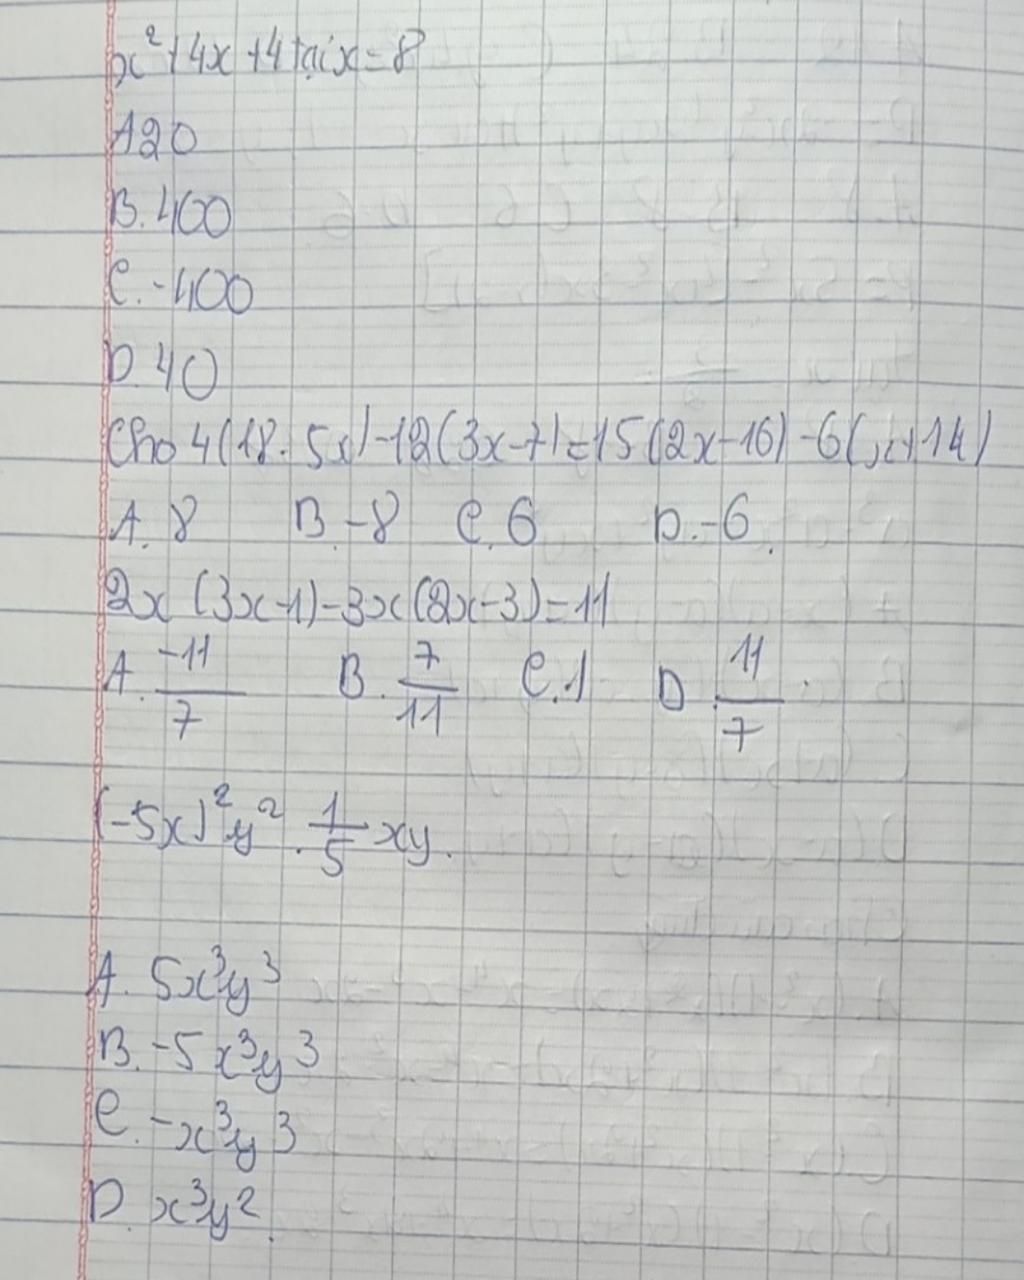 x² + 4x + 4 tại x = 8
A 20
B. 400
C. -400
D. 40
Cho 4(18 - 5x) - 12(3x - 7) = 15(2x - 16) - 6(x + 14)
A. 8 B. -8 C. 6 D. -6
2x (3x - 1) - 3x (2x - 3) = 11
A. -11/7 B. 7/11 C. 1 D. 11/7
(-5x)² y² . 1/5 xy.
A. 5x³y³
B. -5x³y³
C. -x³y³
D. x³y²